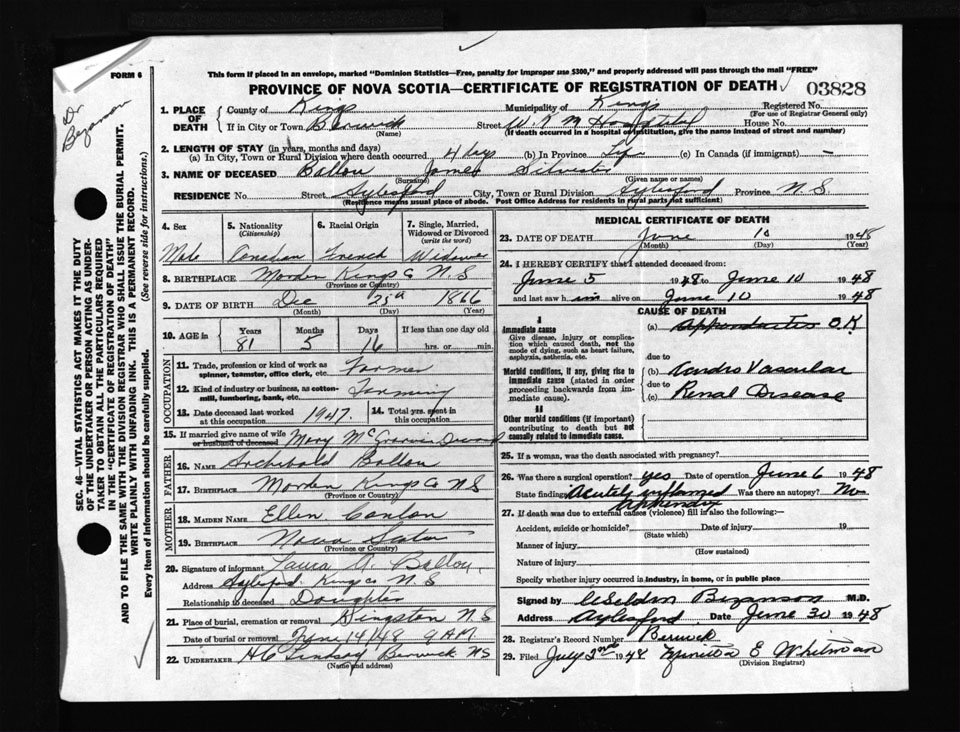 FORM 6
This form if placed in an envelope, marked "Dominion Statistics—Free, penalty for improper use $300," and properly addressed will pass through the mail "FREE"
PROVINCE OF NOVA SCOTIA—CERTIFICATE OF REGISTRATION OF DEATH 03828
Dr Bezanson
SEC. 46—VITAL STATISTICS ACT MAKES IT THE DUTY
OF THE UNDERTAKER OR PERSON ACTING AS UNDER-
TAKER TO OBTAIN ALL THE PARTICULARS REQUIRED
IN THE "CERTIFICATE OF REGISTRATION OF DEATH"
AND TO FILE THE SAME WITH THE DIVISION REGISTRAR WHO SHALL ISSUE THE BURIAL PERMIT.
WRITE PLAINLY WITH UNFADING INK. THIS IS A PERMANENT RECORD.
Every item of information should be carefully supplied. (See reverse side for instructions.)
1. PLACE OF DEATH County of Kings Municipality of Kings Registered No.
(For use of Registrar General only)
If in City or Town Berwick Street W. K M Hospital House No.
(Name) (If death occurred in a hospital or institution, give the name instead of street and number)
2. LENGTH OF STAY (in years, months and days)
(a) In City, Town or Rural Division where death occurred 4 days (b) In Province Life (c) In Canada (if immigrant) —
3. NAME OF DECEASED Ballou James Silvester
(Surname) (Given name or names)
RESIDENCE No. Street Aylesford City, Town or Rural Division Aylesford Province N.S.
(Residence means usual place of abode. Post Office Address for residents in rural parts not sufficient)
4. Sex 5. Nationality (Citizenship) 6. Racial Origin 7. Single, Married, Widowed or Divorced (write the word)
Male Canadian French Widower
8. BIRTHPLACE Morden Kings Co N.S
(Province or Country)
9. DATE OF BIRTH Dec 25th 1866
(Month) (Day) (Year)
10. AGE in Years Months Days If less than one day old
81 5 16 hrs. or min.
OCCUPATION
11. Trade, profession or kind of work as spinner, teamster, office clerk, etc. Farmer
12. Kind of industry or business, as cotton-mill, lumbering, bank, etc. Farming
13. Date deceased last worked at this occupation 1947. 14. Total yrs. spent in this occupation
15. If married give name of wife or husband of deceased Mary
FATHER
16. NAME Archibald Ballou
17. BIRTHPLACE Morden Kings Co N S
MOTHER
18. MAIDEN NAME Ellen Conlon
19. BIRTHPLACE Nova Scotia
(Province or Country)
20. Signature of informant Laura A. Ballou.
Address Aylesford Kings Co N. S
Relationship to deceased Daughter
21. Place of burial, cremation or removal Kingston N S
Date of burial or removal June 14/48 9 A.M.
22. UNDERTAKER H C Lindsay Berwick NS
(Name and address)
MEDICAL CERTIFICATE OF DEATH
23. DATE OF DEATH June 10 1948
(Month) (Day) (Year)
24. I HEREBY CERTIFY that I attended deceased from:
June 5 1948 to June 10 1948
and last saw him alive on June 10 1948
CAUSE OF DEATH
I
Immediate cause
Give disease, injury or complication which caused death, not the mode of dying, such as heart failure, asphyxia, asthenia, etc.
(a) Appendicitis O.K
due to
Morbid conditions, if any, giving rise to immediate cause (stated in order proceeding backwards from immediate cause).
(b) Cardio Vascular
due to
(c) Renal Disease
II
Other morbid conditions (if important) contributing to death but not causally related to immediate cause.
25. If a woman, was the death associated with pregnancy?
26. Was there a surgical operation? yes Date of operation June 6 1948
State finding Acutely inflamed appendix Was there an autopsy? No
27. If death was due to external causes (violence) fill in also the following:—
Accident, suicide or homicide? Date of injury 19
(State which)
Manner of injury
(How sustained)
Nature of injury
Specify whether injury occurred in industry, in home, or in public place
Signed by Bezanson M.D.
Address Aylesford Date June 30 1948
28. Registrar's Record Number Berwick
29. Filed July 2nd 1948 E Whitman
(Division Registrar)